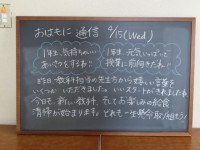 おはもに通信 9/15(Wed)
1年生、気持ちいい
あいさつをするね♡
1年生、元気いっぱいで
授業に前向きだね♡
昨日、教科担当の先生方から嬉しい言葉を
いくついただきました。いいスタートがきれましたね
今日も、新しい教科、そしてお楽しみの給食
清掃が始まります。どれも一生懸命取り組もう!